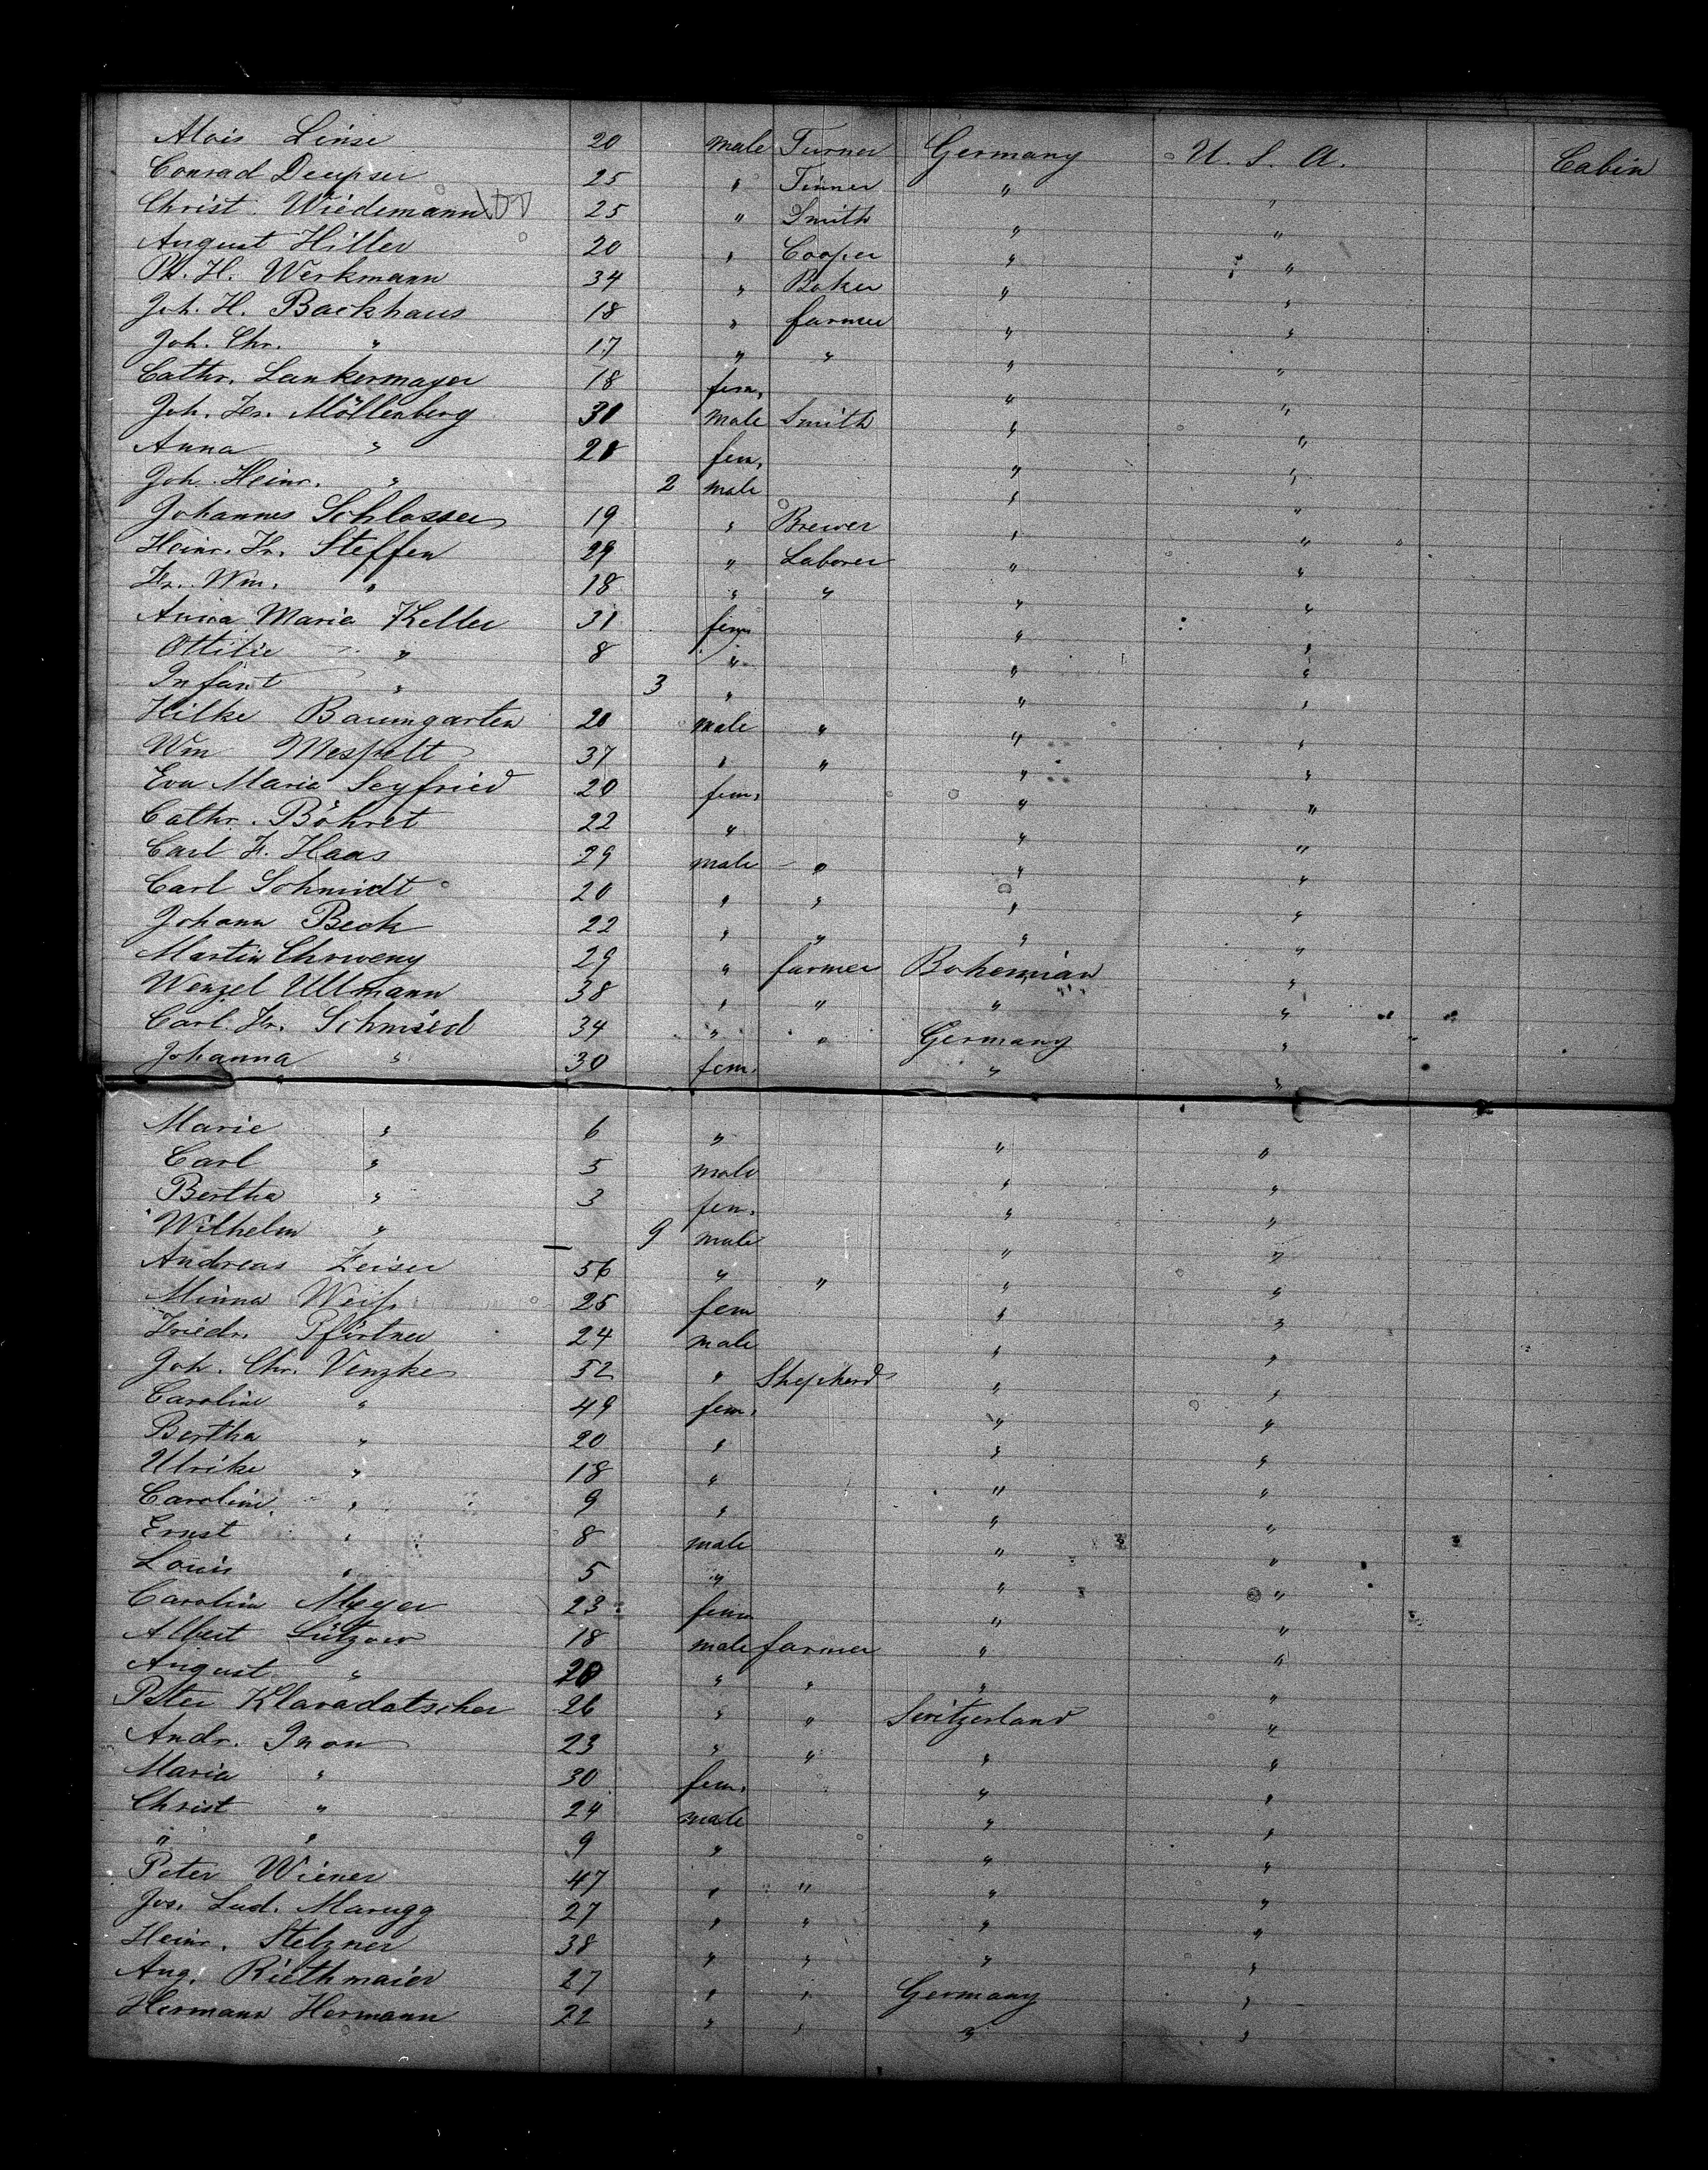 Alois Linse 20 male Turner Germany U. S. A. Cabin
Conrad Deupser 25 " Tinner " "
Christ. Wiedemann 25 " Smith " "
August Hiller 20 " Cooper " "
Ph. H. Werkmann 34 " Baker " "
Joh. H. Backhaus 18 " farmer " "
Joh. Chr. " 17 " " " "
Cathr. Lankermayer 18 fem. " "
Joh. Fr. Möllenberg 31 male Smith " "
Anna " 21 fem. " "
Joh. Heinr. " 2 male " "
Johannes Schlosser 19 " Brewer " "
Heinr. Fr. Steffen 29 " Laborer " "
Fr. Wm. " 18 " " " "
Anna Maria Keller 31 fem " "
Ottilie " 8 " " "
Infant " 3 " " "
Hilke Baumgarten 20 male " " "
Wm Mespelt 37 " " " "
Eva Maria Seyfried 20 fem. " "
Cathr. Böhret 22 " " "
Carl F. Haas 29 male " " "
Carl Schmidt 20 " " " "
Johann Beck 22 " " " "
Martin Chrweny 29 " farmer Bohemian "
Wenzel Ullmann 38 " " " "
Carl. Fr. Schmied 34 " " Germany "
Johanna " 30 fem. " "
Marie " 6 " " "
Carl " 5 male " "
Bertha " 3 fem. " "
Wilhelm " — 9 male " "
Andreas Zeiser 56 " " " "
Minna Weiß 25 fem " "
Friedr. Pförtner 24 male " "
Joh. Chr. Venzke 52 " Shepherd " "
Caroline " 49 fem. " "
Bertha " 20 " " "
Ulrike " 18 " " "
Caroline " 9 " " "
Ernst " 8 male " "
Louis " 5 " " "
Carolin Meyer 23 fem " "
Albert Lützow 18 male farmer " "
August " 20 " " " "
Peter Klavadatscher 26 " " Switzerland "
Andr. Inon 23 " " " "
Maria " 30 fem. " "
Christ " 24 male " "
" " 9 " " "
Peter Wiener 47 " " " "
Jos. Lud. Marugg 27 " " " "
Heinr. Stelzner 38 " " " "
Aug. Riethmaier 27 " " Germany "
Hermann Hermann 22 " " " "